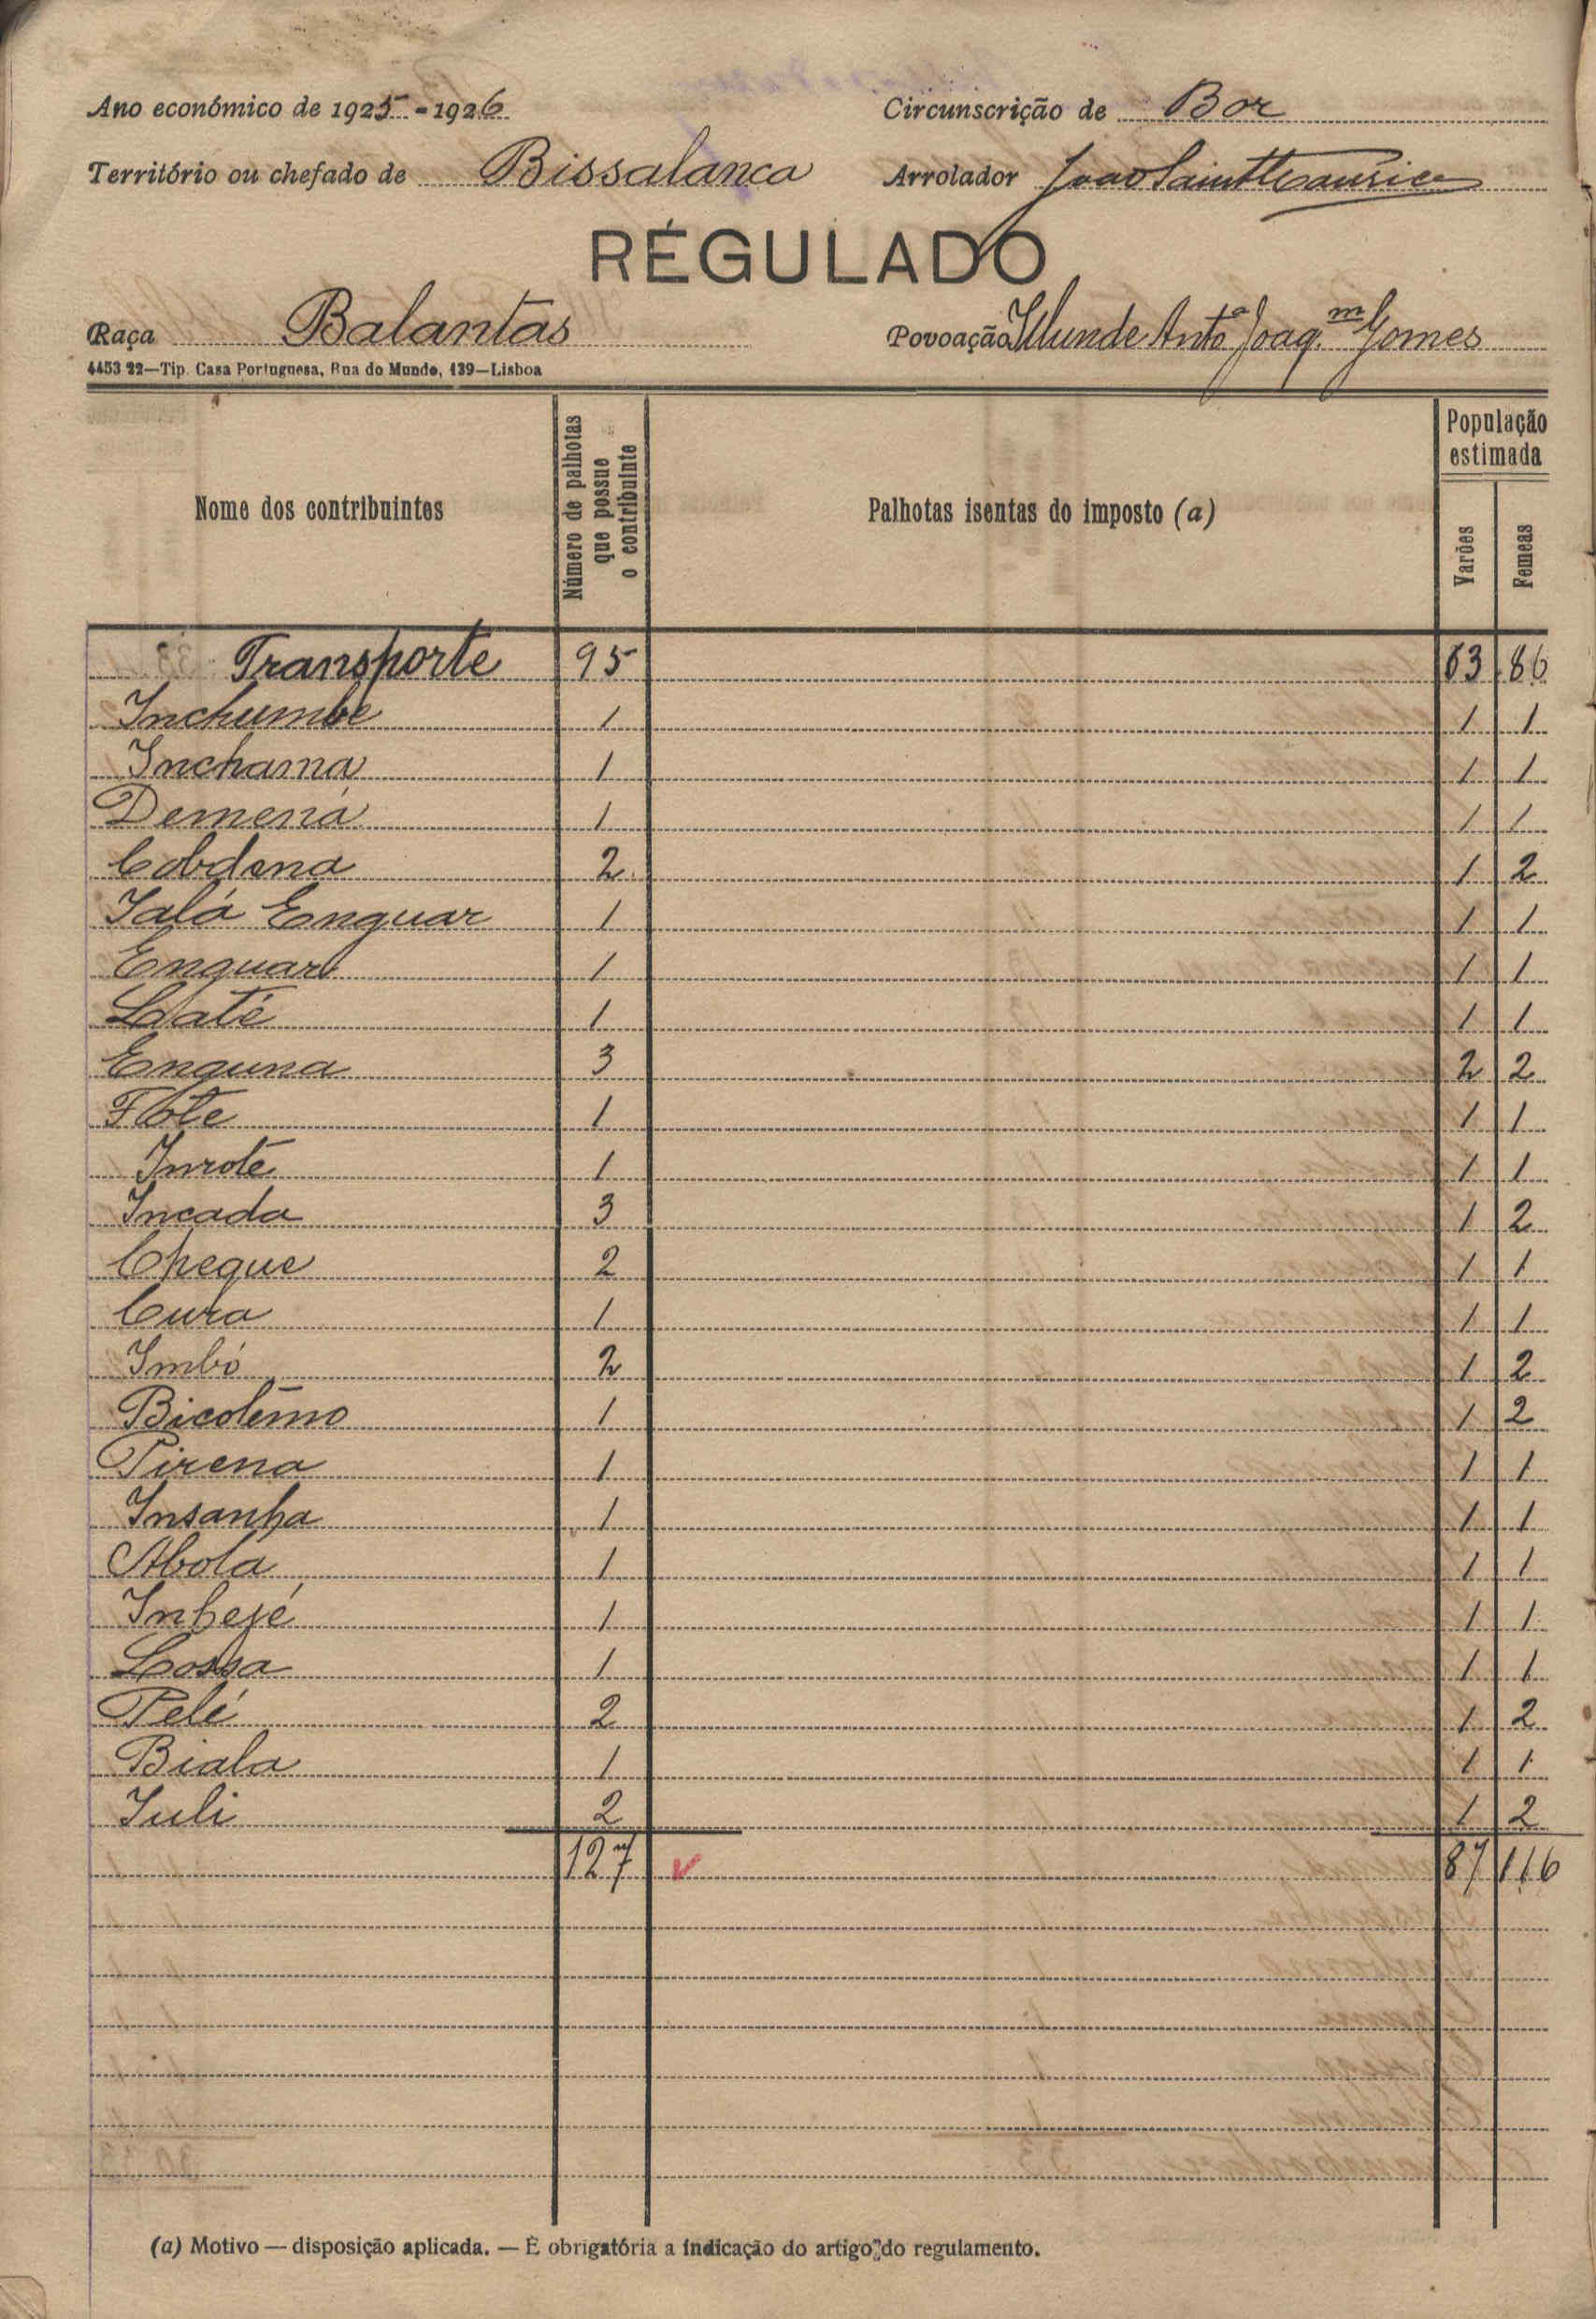 Ano económico de 1925-1926 Circunscrição de Bor
Território ou chefado de Bissalanca Arrolador João Saint Maurice
RÉGULADO
Raça Balantas Povoação Ilunde Antº Joaq.m Gomes
4453 22—Tip. Casa Portuguesa, Rua do Mundo, 139—Lisboa
Nome dos contribuintes Número de palhotas que possue o contribuinte Palhotas isentas do imposto (a) População estimada Varões Femeas
Transporte 95 63 86
Inchumbe 1 1 1
Inchama 1 1 1
Demená 1 1 1
Cobdena 2 1 2
Ialá Enguar 1 1 1
Enguar 1 1 1
Laté 1 1 1
Enguna 3 2 2
Fóte 1 1 1
Inroté 1 1 1
Incada 3 1 2
Cheque 2 1 1
Cura 1 1 1
Imbó 2 1 2
Bicotémo 1 1 2
Pirena 1 1 1
Insanha 1 1 1
Abola 1 1 1
Inhejé 1 1 1
Lossa 1 1 1
Pelé 2 1 2
Biala 1 1 1
Iuli 2 1 2
127 87 116
(a) Motivo — disposição aplicada. — É obrigatória a indicação do artigo do regulamento.